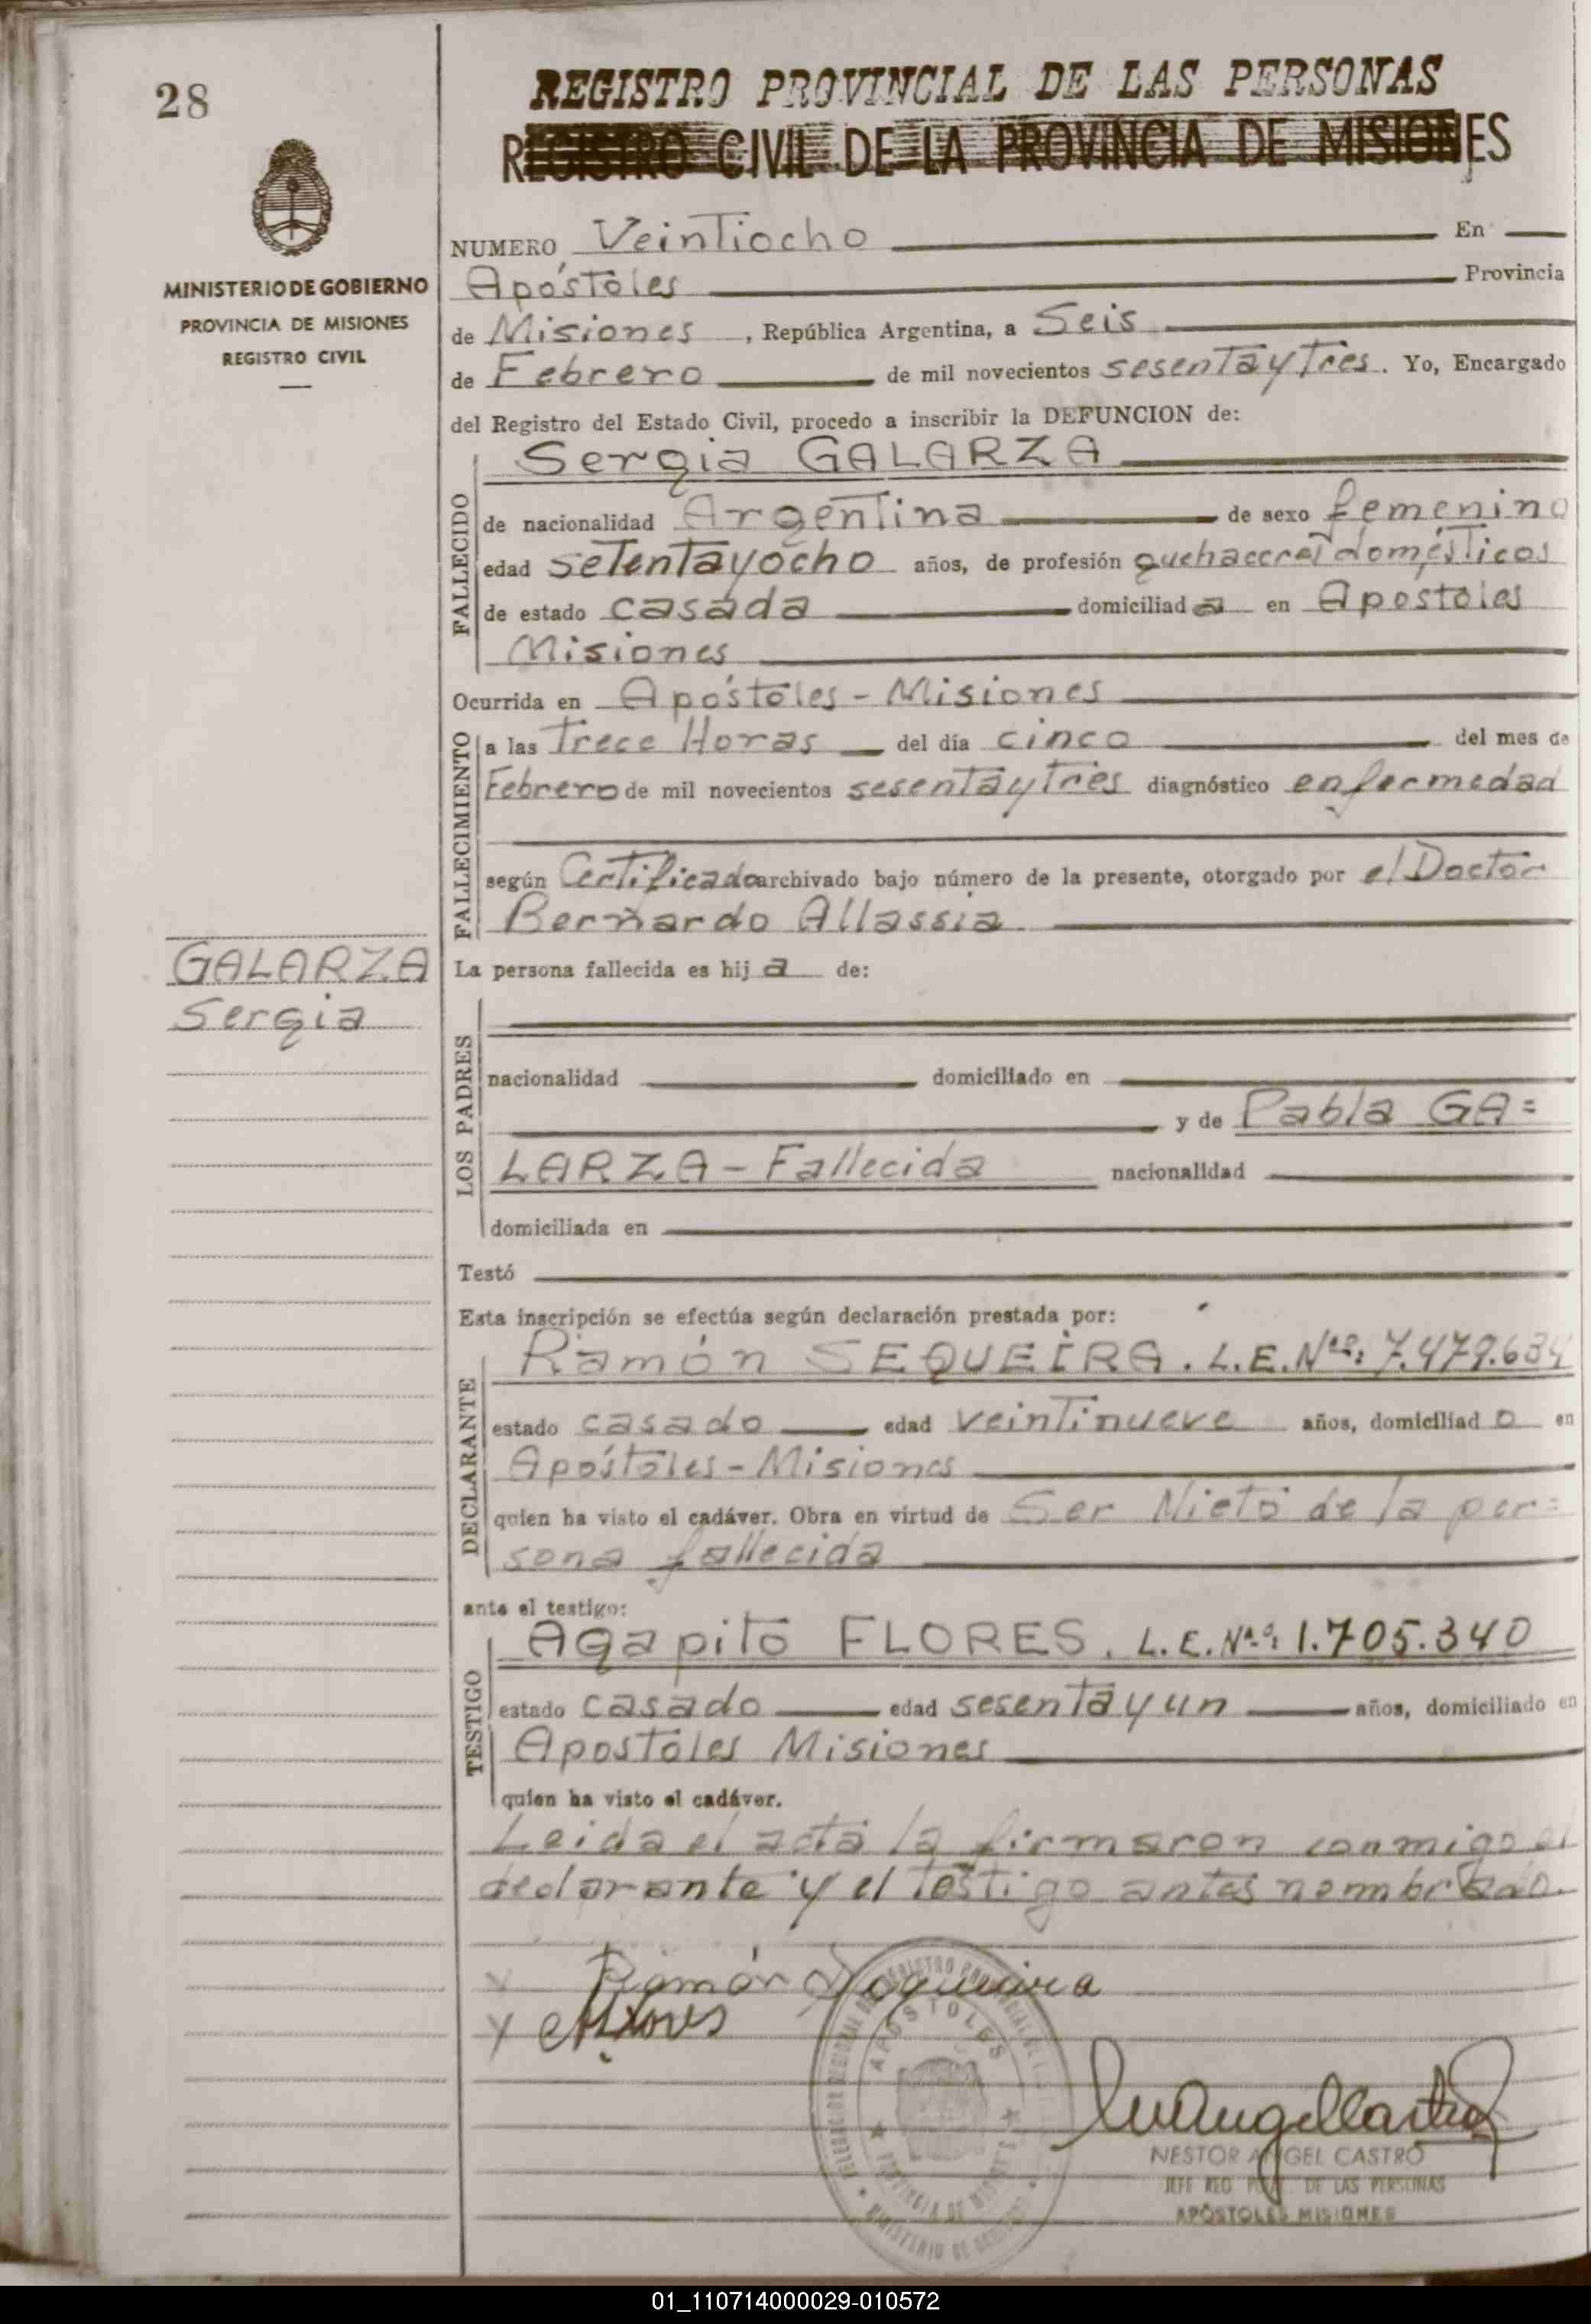 28
REGISTRO PROVINCIAL DE LAS PERSONAS
REGISTRO CIVIL DE LA PROVINCIA DE MISIONES
MINISTERIO DE GOBIERNO
PROVINCIA DE MISIONES
REGISTRO CIVIL
NUMERO Veintiocho En
Apóstoles Provincia
de Misiones, República Argentina, a Seis
de Febrero de mil novecientos sesentaytres. Yo, Encargado
del Registro del Estado Civil, procedo a inscribir la DEFUNCION de:
FALLECIDO
Sergia GALARZA
de nacionalidad Argentina de sexo femenino
edad setentayocho años, de profesión quehaceres domésticos
de estado casada domiciliada en Apostoles
Misiones
Ocurrida en Apóstoles - Misiones
FALLECIMIENTO
a las Trece Horas del día cinco del mes de
Febrero de mil novecientos sesentaytres diagnóstico enfermedad
según Certificado archivado bajo número de la presente, otorgado por el Doctor
Bernardo Allassia.
GALARZA
Sergia
La persona fallecida es hija de:
LOS PADRES
nacionalidad domiciliado en
y de Pabla GA=
LARZA - Fallecida nacionalidad
domiciliada en
Testó
Esta inscripción se efectúa según declaración prestada por:
DECLARANTE
Ramón SEQUEIRA. L.E.Nº: 7.479.634
estado casado edad veintinueve años, domiciliado en
Apóstoles - Misiones
quien ha visto el cadáver. Obra en virtud de Ser Nieto de la per=
sona fallecida
ante el testigo:
TESTIGO
Agapito FLORES. L.E.Nº: 1.705.340
estado casado edad sesentayun años, domiciliado en
Apostoles Misiones
quien ha visto el cadáver.
Leida el acta la firmaron conmigo el
declarante y el testigo antes nombrado.
Ramón Sequeira
Flores
APOSTOLES
PROVINCIA DE MISIONES
MINISTERIO DE GOBIERNO
NESTOR ANGEL CASTRO
JEFE REG. PROV. DE LAS PERSONAS
APÓSTOLES MISIONES
01_110714000029-010572